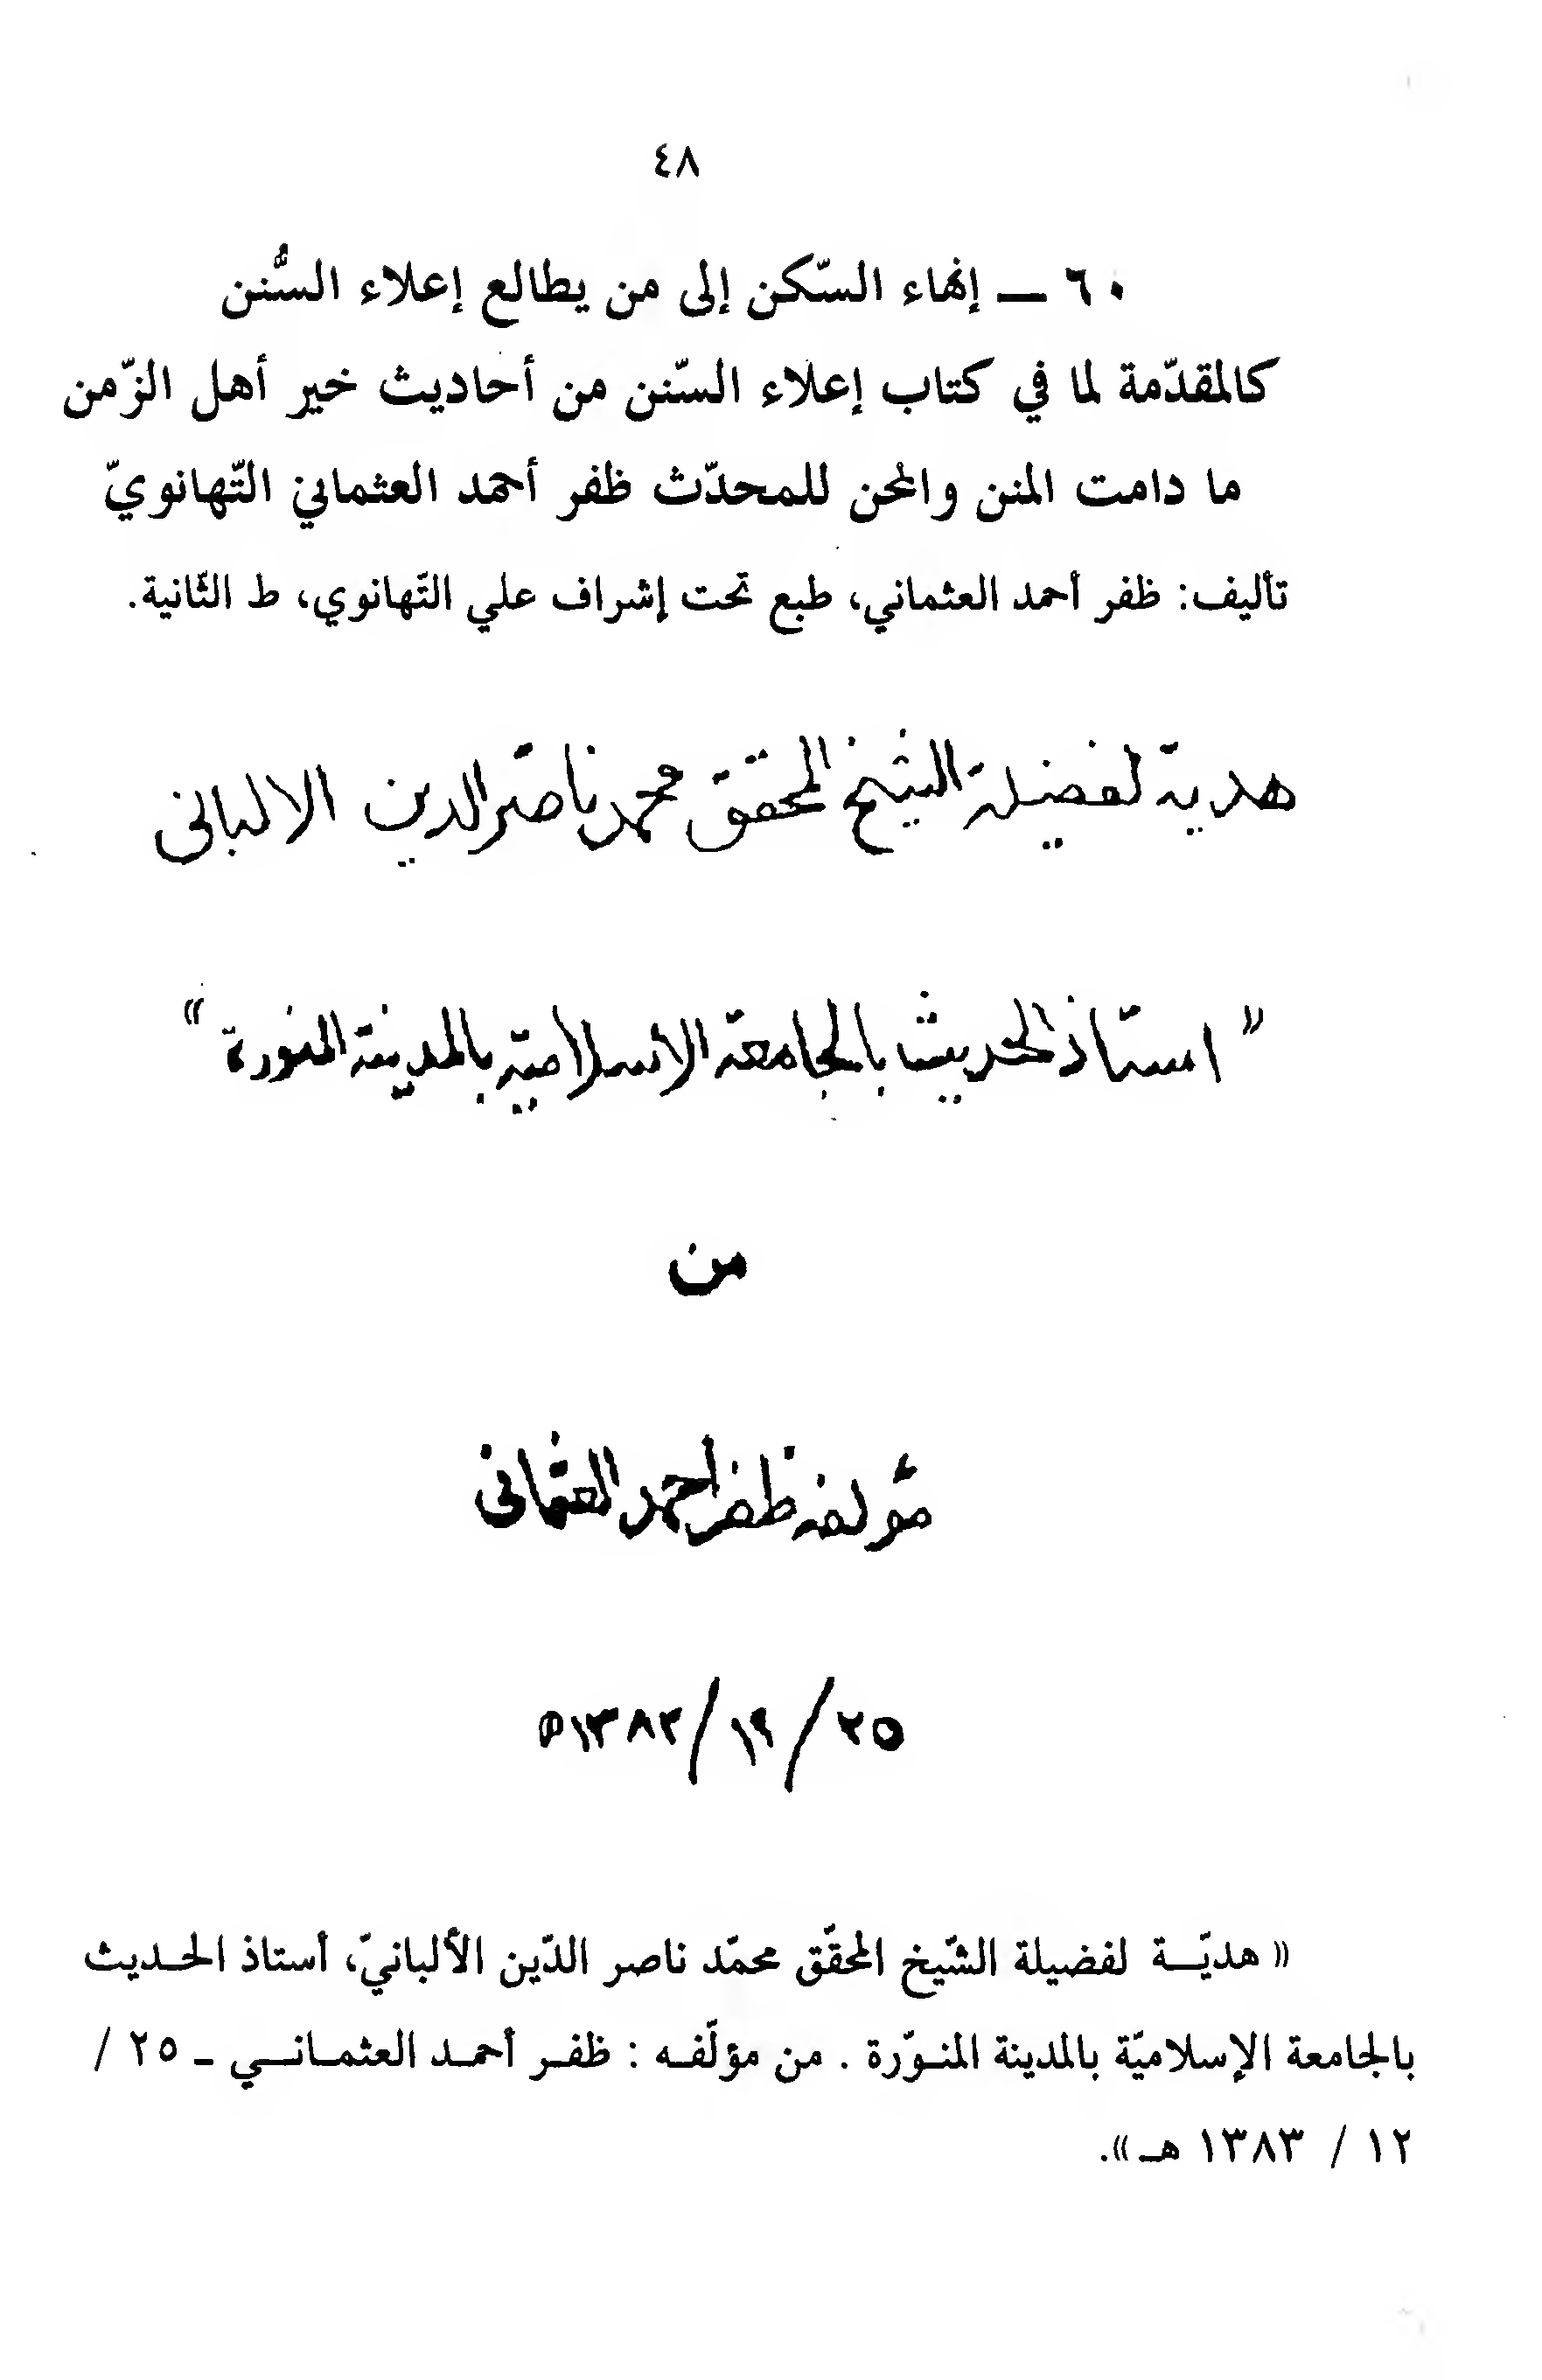 ٤٨
٦٠ — إنهاء السّكن إلى من يطالع إعلاء السُّنن
كالمقدّمة لما في كتاب إعلاء السّنن من أحاديث خير أهل الزّمن
ما دامت المنن والمحن للمحدّث ظفر أحمد العثماني التّهانويّ
تأليف: ظفر أحمد العثماني، طبع تحت إشراف علي التّهانوي، ط الثّانية.
هدية لفضيلة الشيخ المحقق محمد ناصر الدين الالبانى
" استاذ الحديث بالجامعة الاسلامية بالمدينة المنورة "
من
مؤلفه ظفر احمد العثمانى
٢٥/١٢/١٣٨٣ھ
« هديّـة لفضيلة الشّيخ المحقّق محمّد ناصر الدّين الألبانيّ، أستاذ الحـديث
بالجامعة الإسلاميّة بالمدينة المنـوّرة . من مؤلّفـه : ظفـر أحمـد العثمـانـي ـ ٢٥ /
١٢ / ١٣٨٣ هـ ».